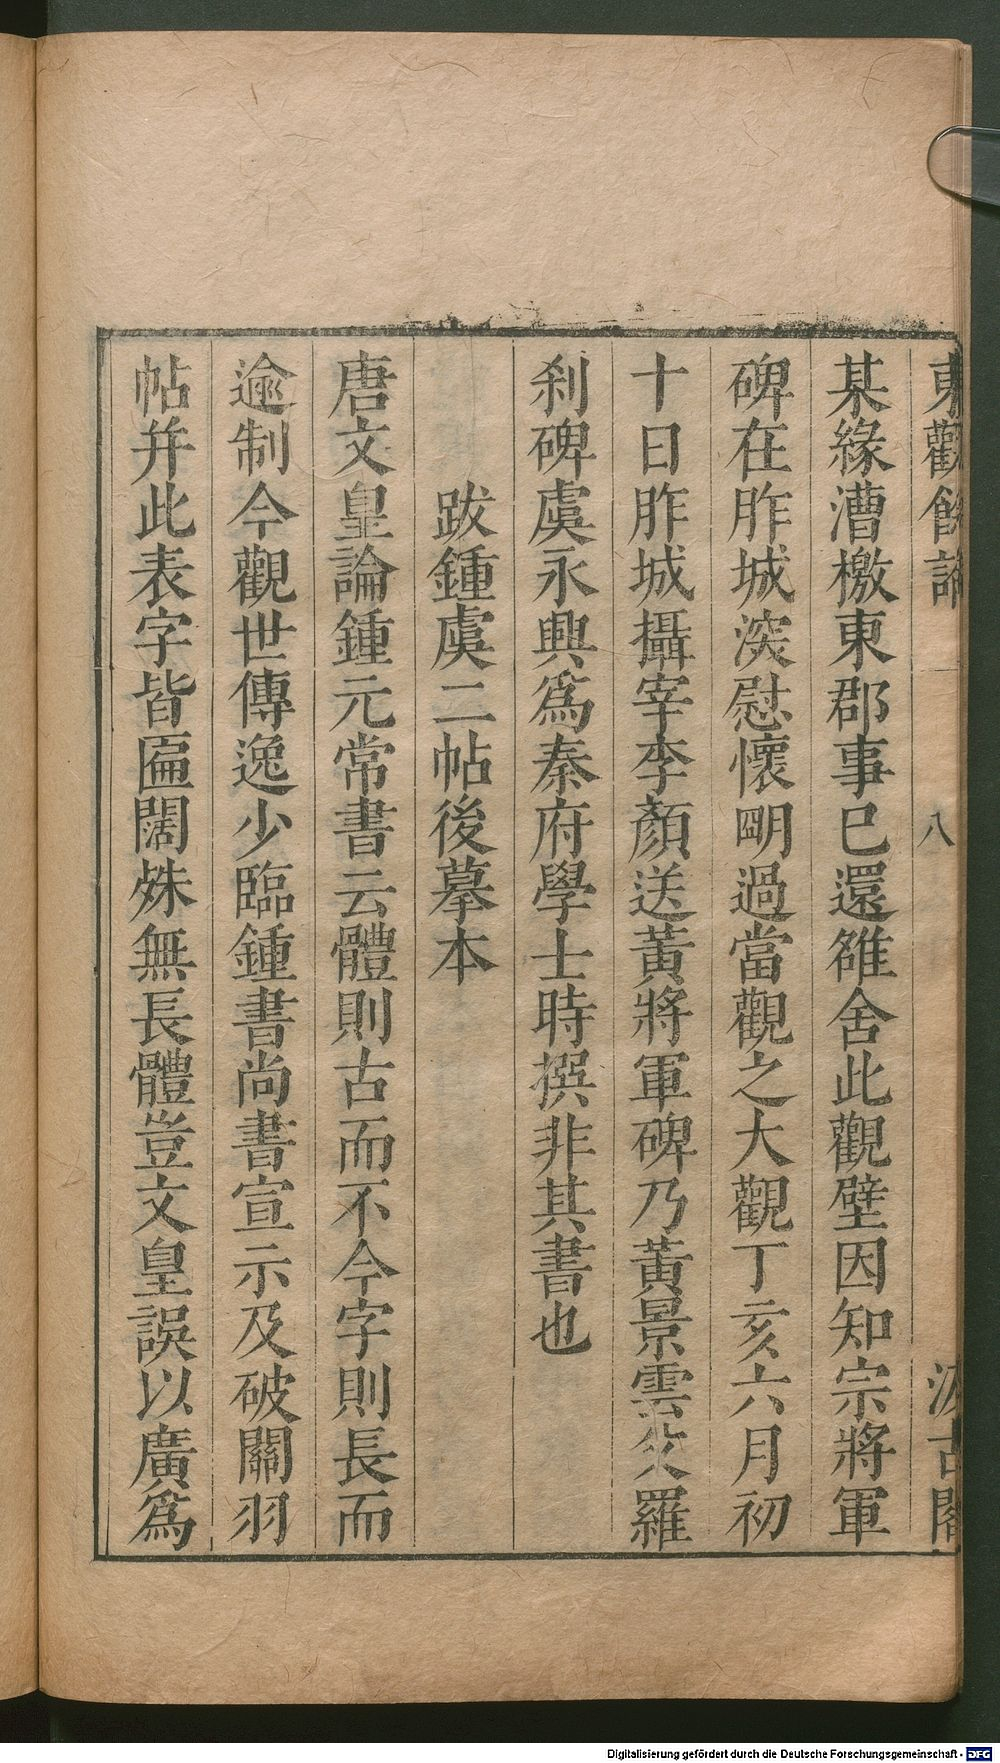 東觀餘論 八 汲古閣
某緣漕檄東郡事已還雒舍此觀壁因知宗將軍
碑在胙城深慰懷明過當觀之大觀丁亥六月初
十日胙城攝宰李顏送黃將軍碑乃黃景雲尒羅
刹碑虞永興爲秦府學士時撰非其書也
跋鍾虞二帖後摹本
唐文皇論鍾元常書云體則古而不今字則長而
逾制今觀世傳逸少臨鍾書尚書宣示及破關羽
帖并此表字皆匾闊殊無長體豈文皇誤以廣爲
Digitalisierung gefördert durch die Deutsche Forschungsgemeinschaft - DFG